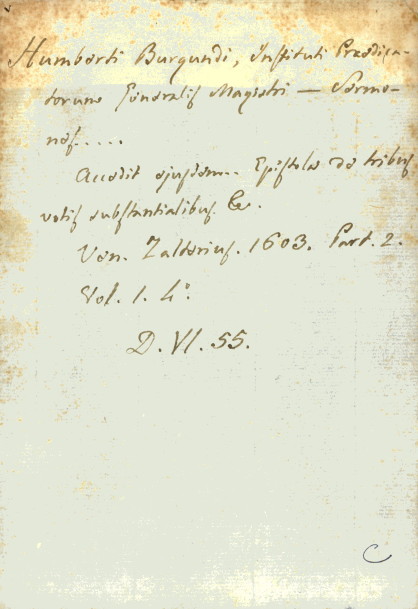 Humberti Burgundi, Instituti Prædica-
torum Generalis Magistri — Sermo-
nes.....
Accedit ejusdem... Epistola de tribus
votis substantialibus &c.
Ven. Zalterius. 1603. Part. 2.
Vol. 1. 4°.
D. VI. 55.
C